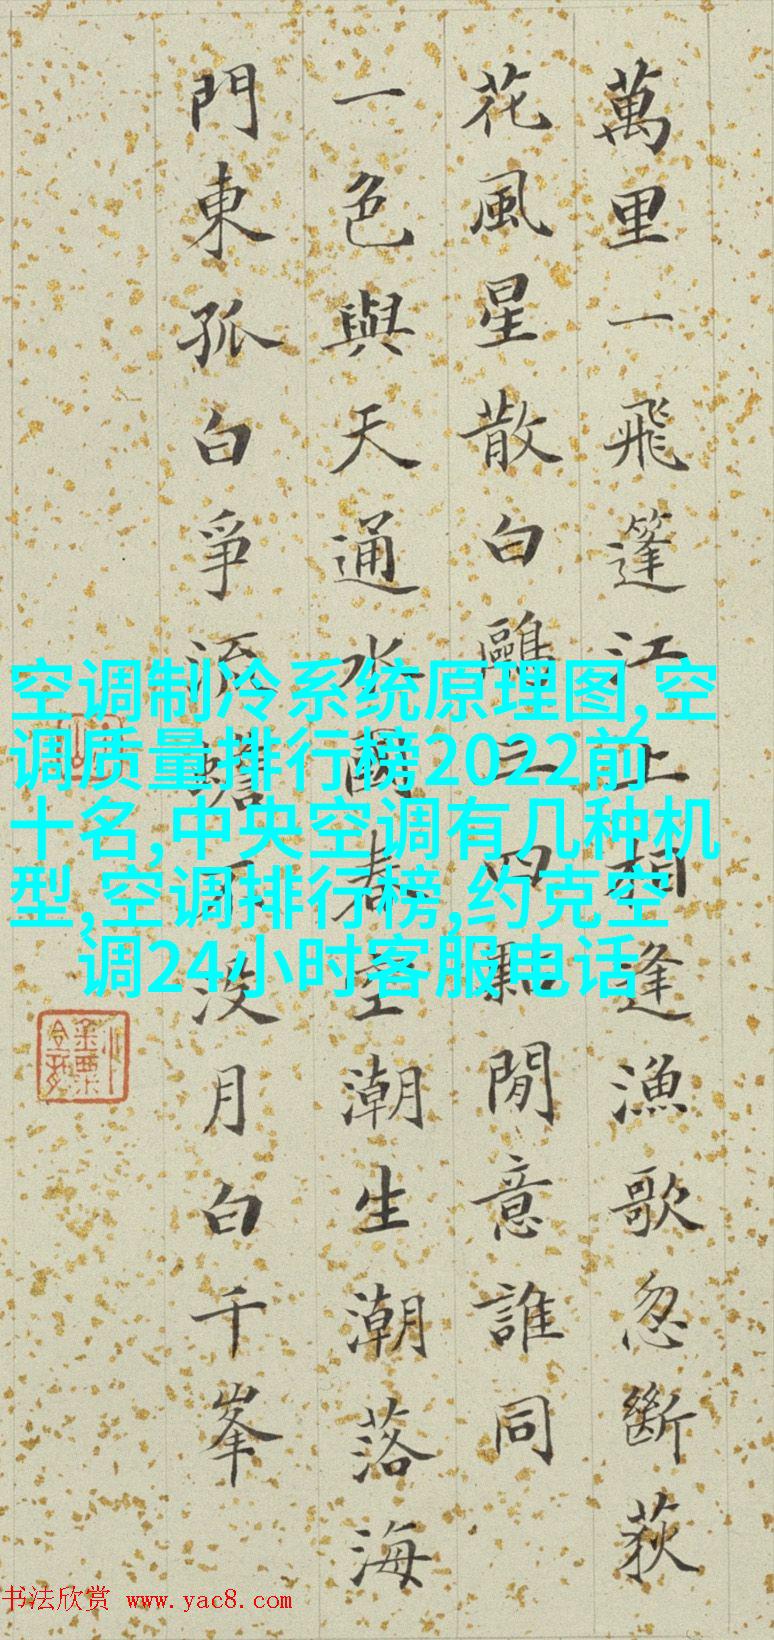 萬里一飛篷江上相逢漁歌忽斷荻
花風星散白鷗三四點閒意誰同
一色與天通水闊春空潮生潮落海
門東孤白爭流蟾不沒月白千峯
空调制冷系统原理图,空
调质量排行榜2022前
十名,中央空调有几种机
型,空调排行榜,约克空
调24小时客服电话
书法欣赏 www.yac8.com